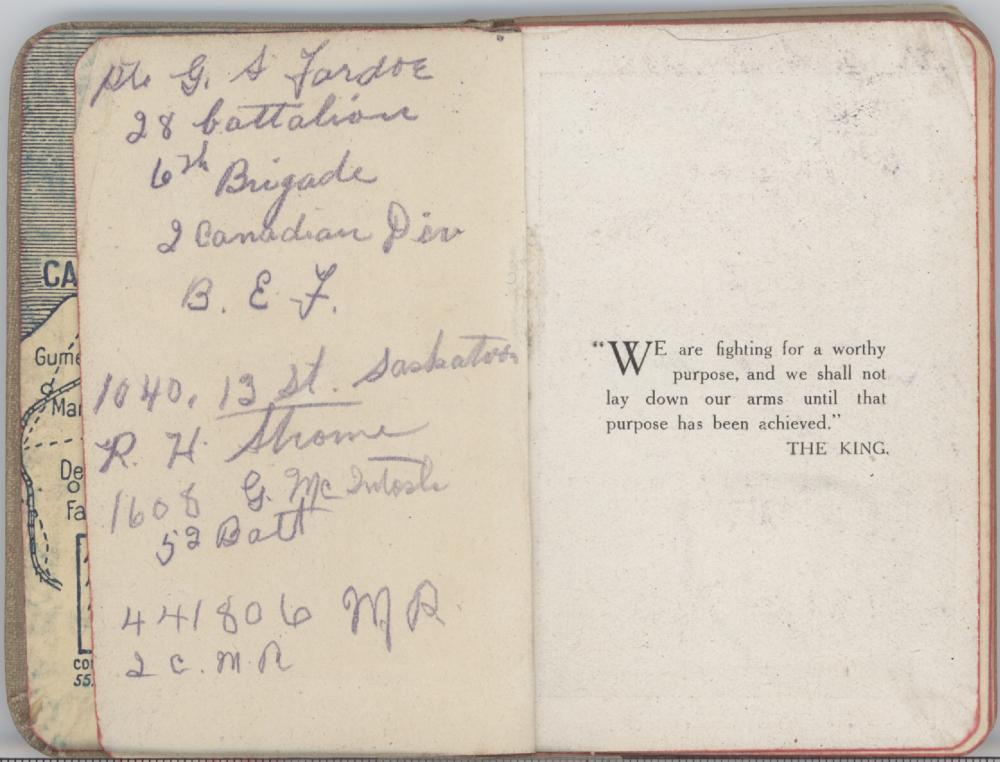 Pte G. A Fardoe
28 battalion
6th Brigade
2 Canadian Div
B. E. F.
1040, 13 St. Saskatoon
R. H. Strome
1608 G. McIntosh
52 Batt
441806 M R
2 C. M. R
CA
Gume
Mar
De
Fa
CO
55
"WE are fighting for a worthy
purpose, and we shall not
lay down our arms until that
purpose has been achieved."
THE KING.